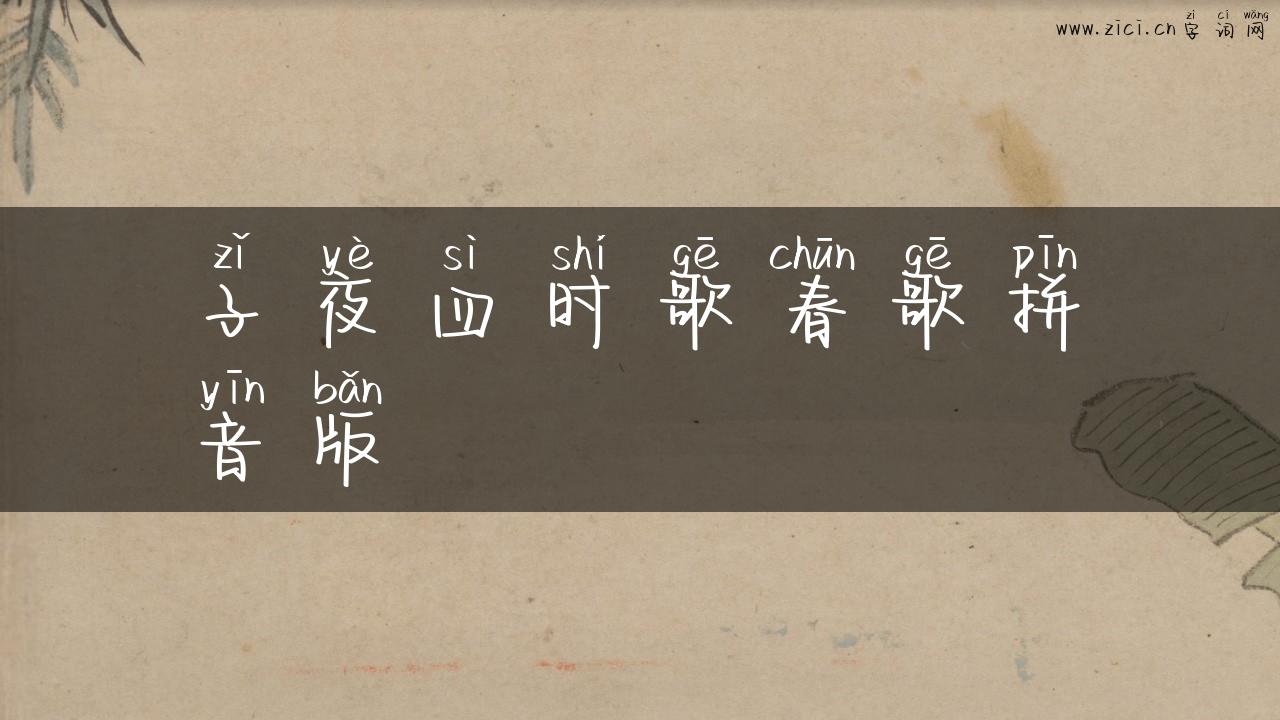 zì cí wǎng
www.zici.cn 字词网
zǐ yè sì shí gē chūn gē pīn
子夜四时歌春歌拼
yīn bǎn
音版